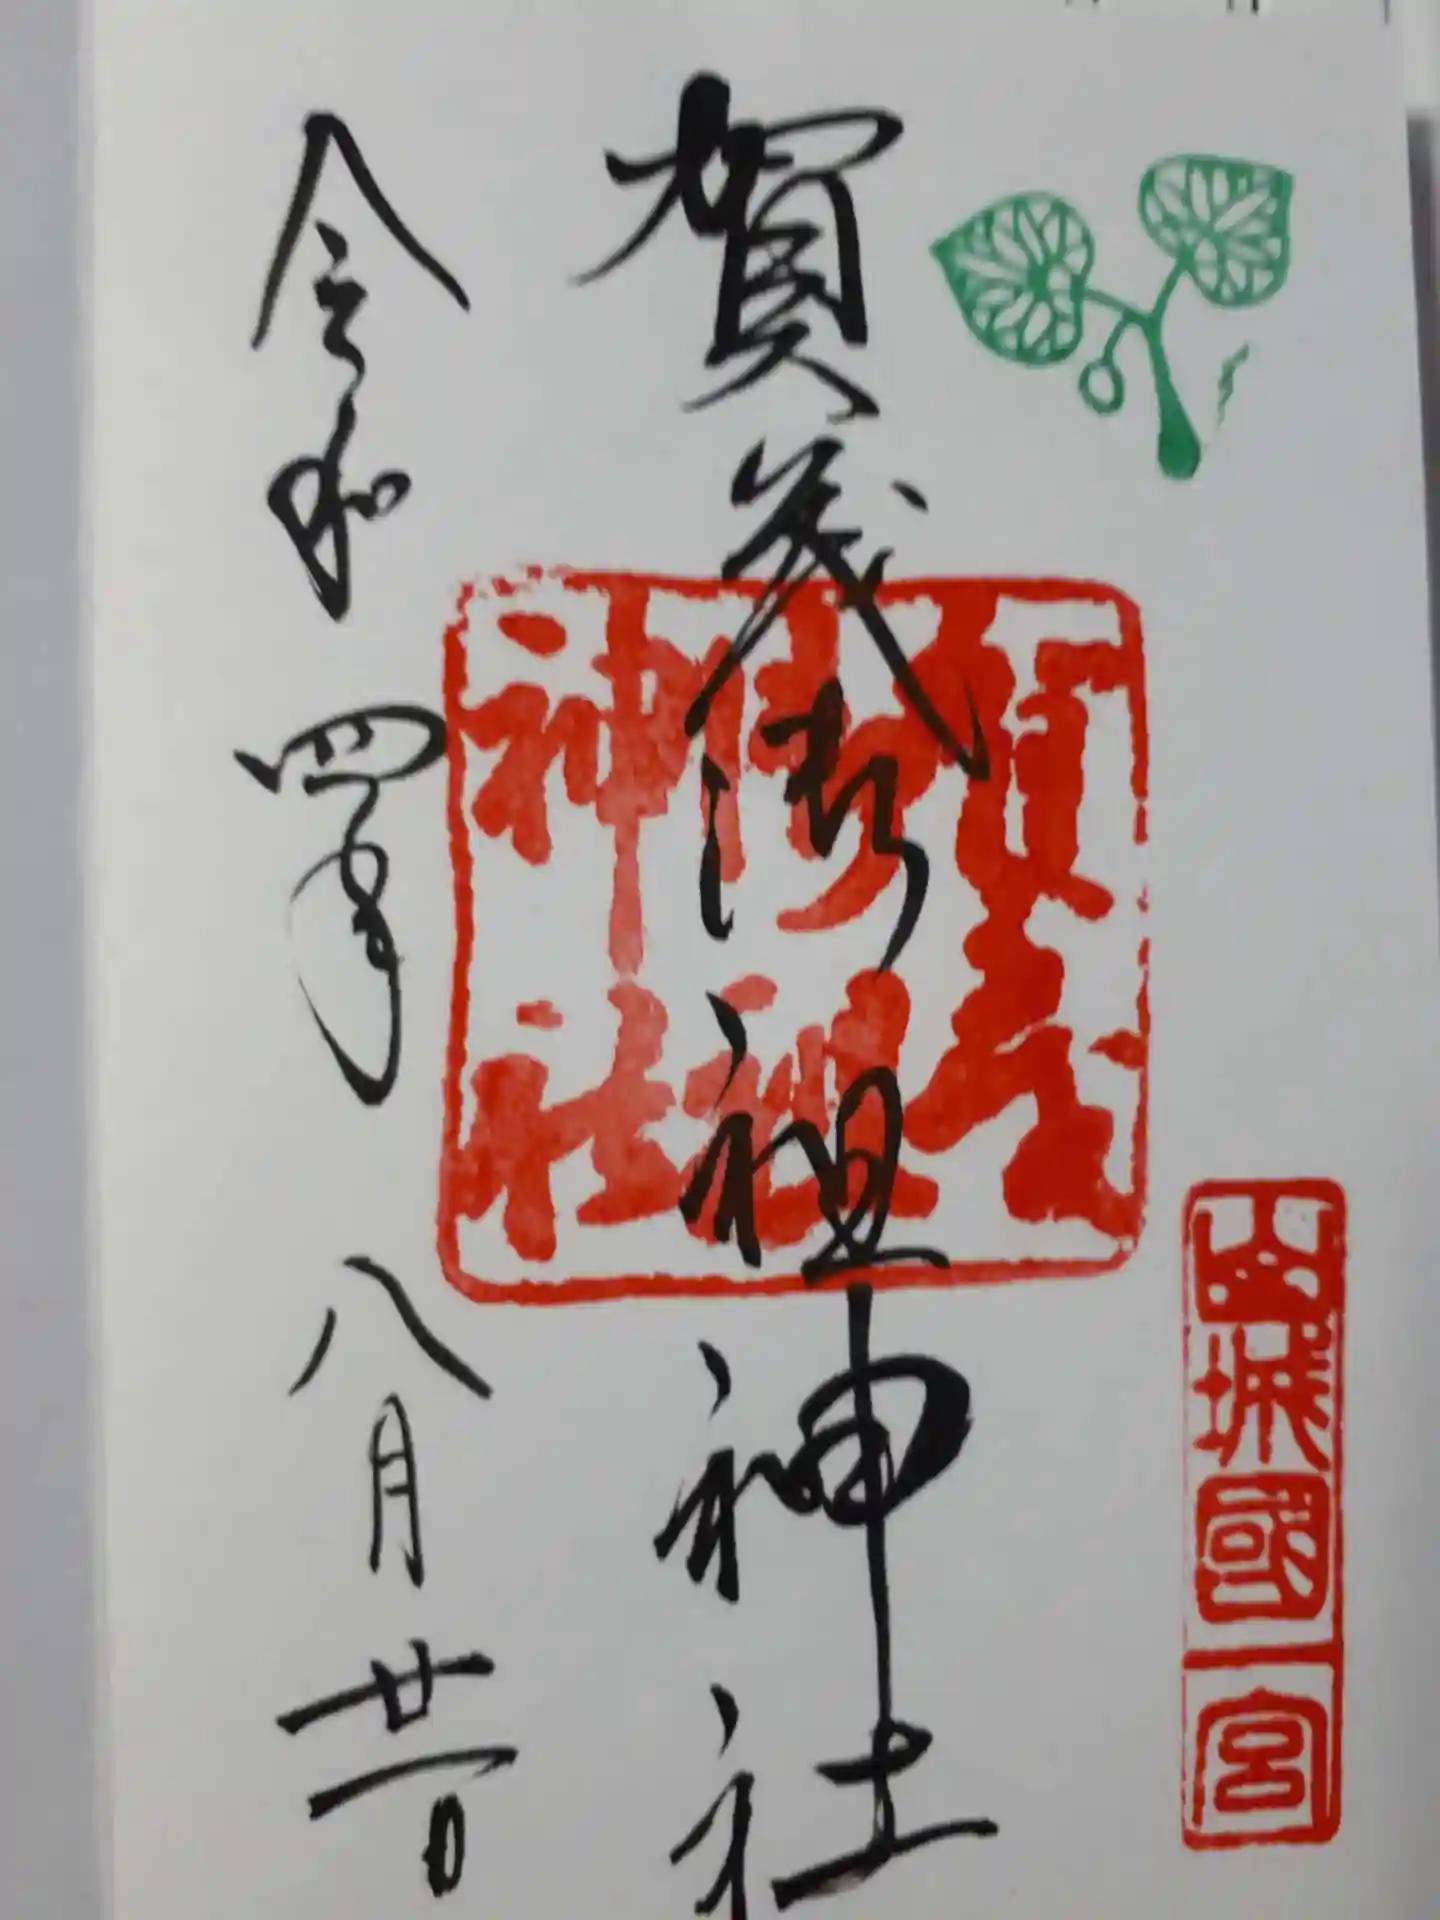 山城國一宮
賀茂御祖神社
賀茂御祖神社
令和四年八月廿一日